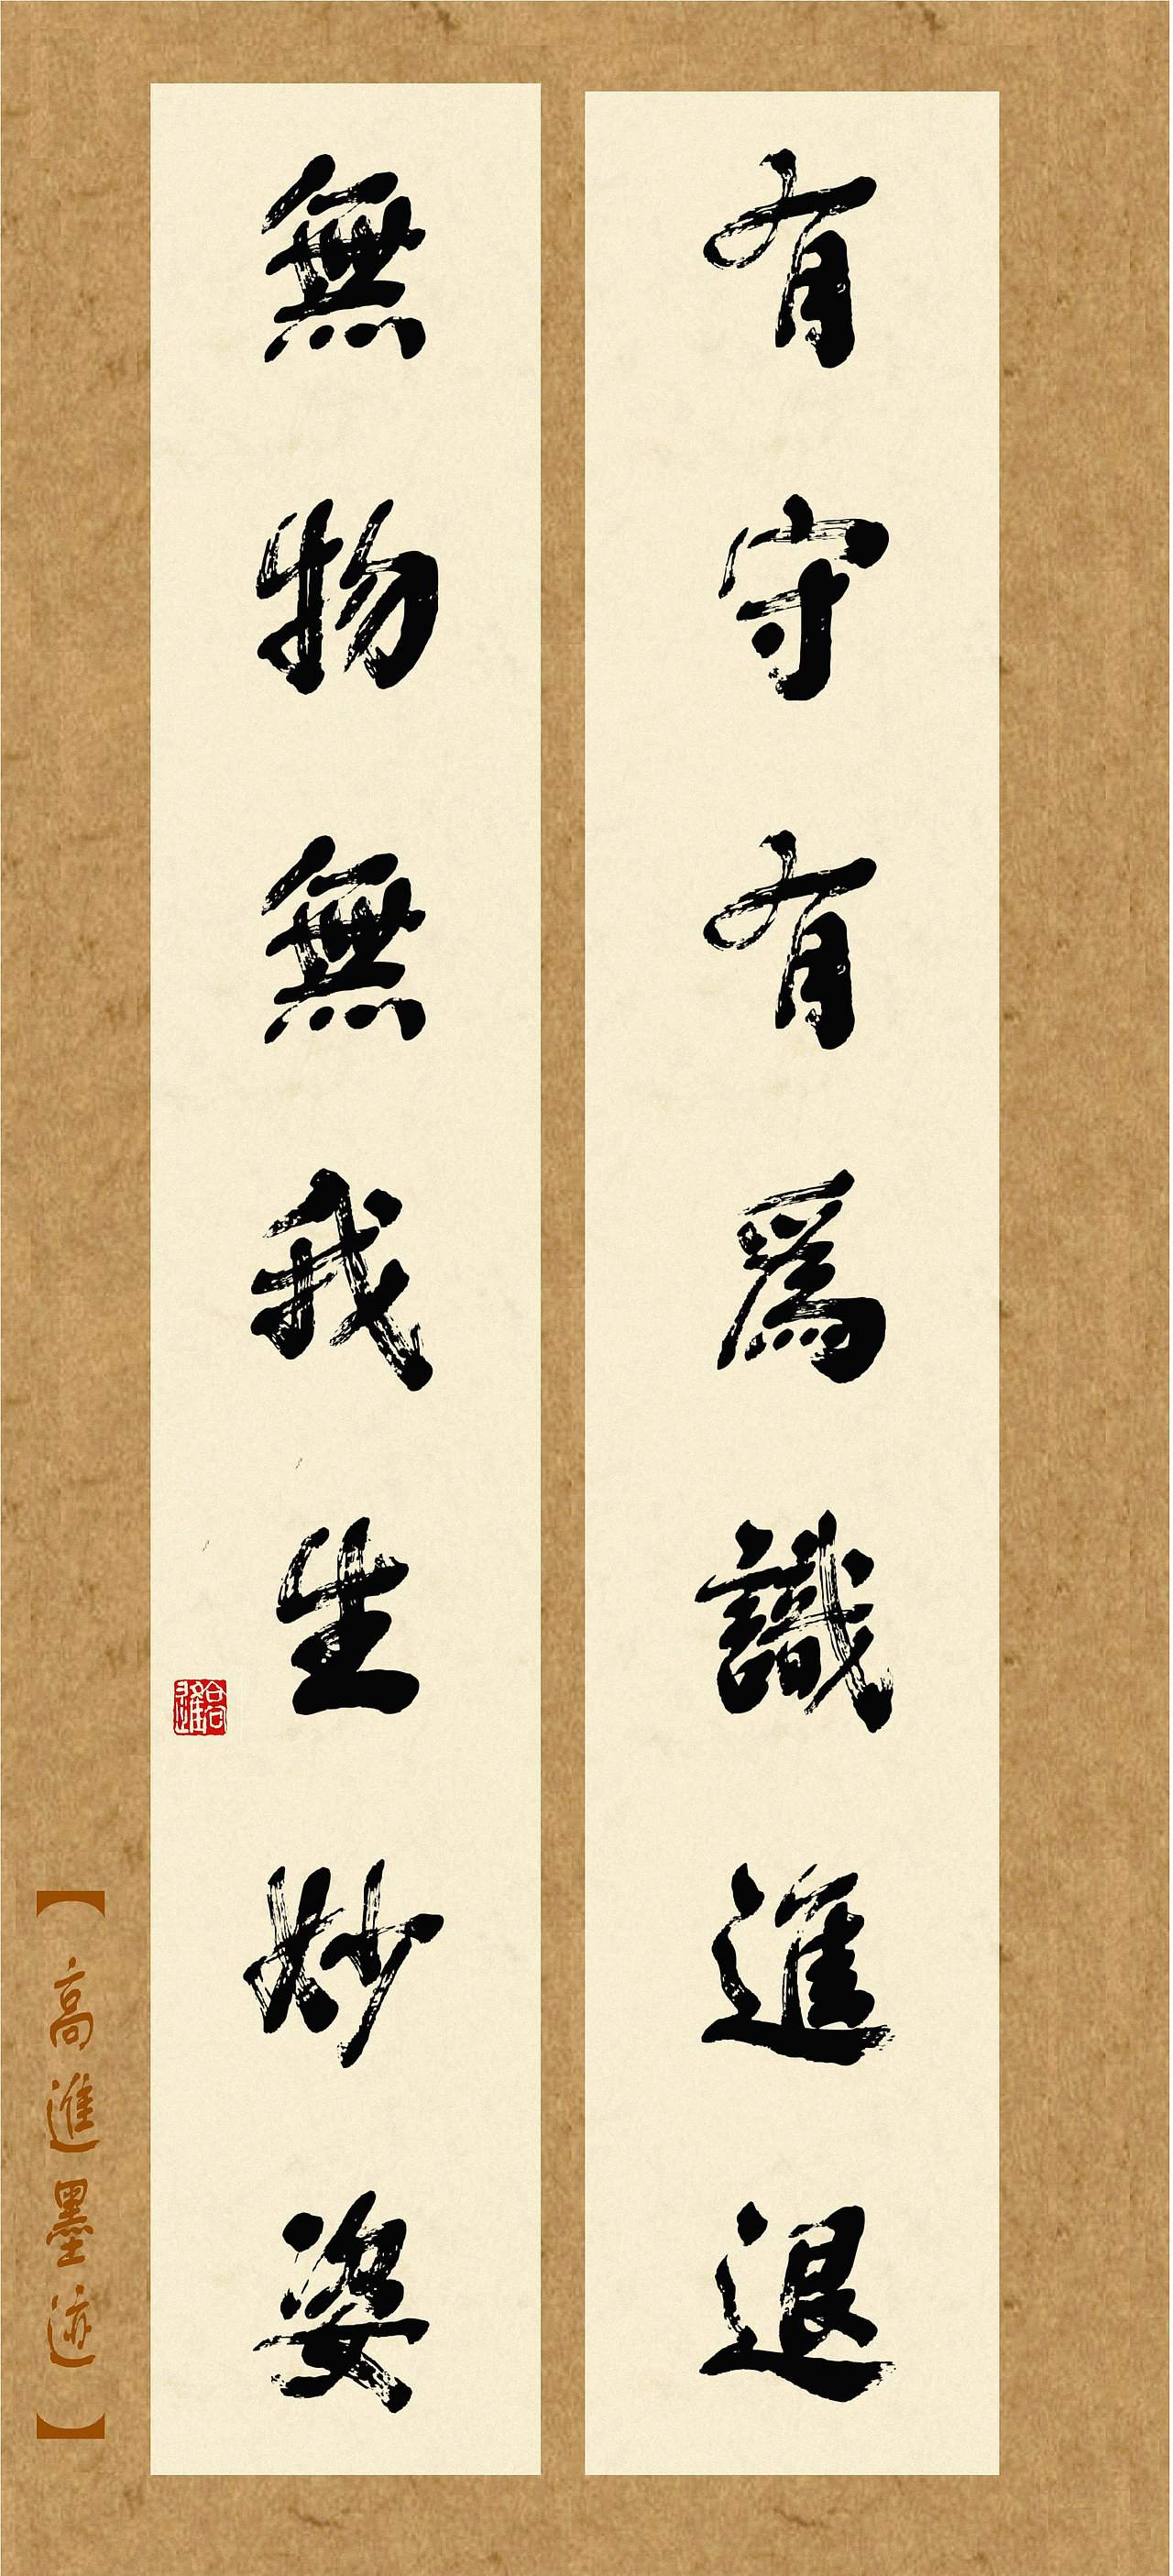 有守有爲識進退
無物無我生妙姿
【高進墨迹】